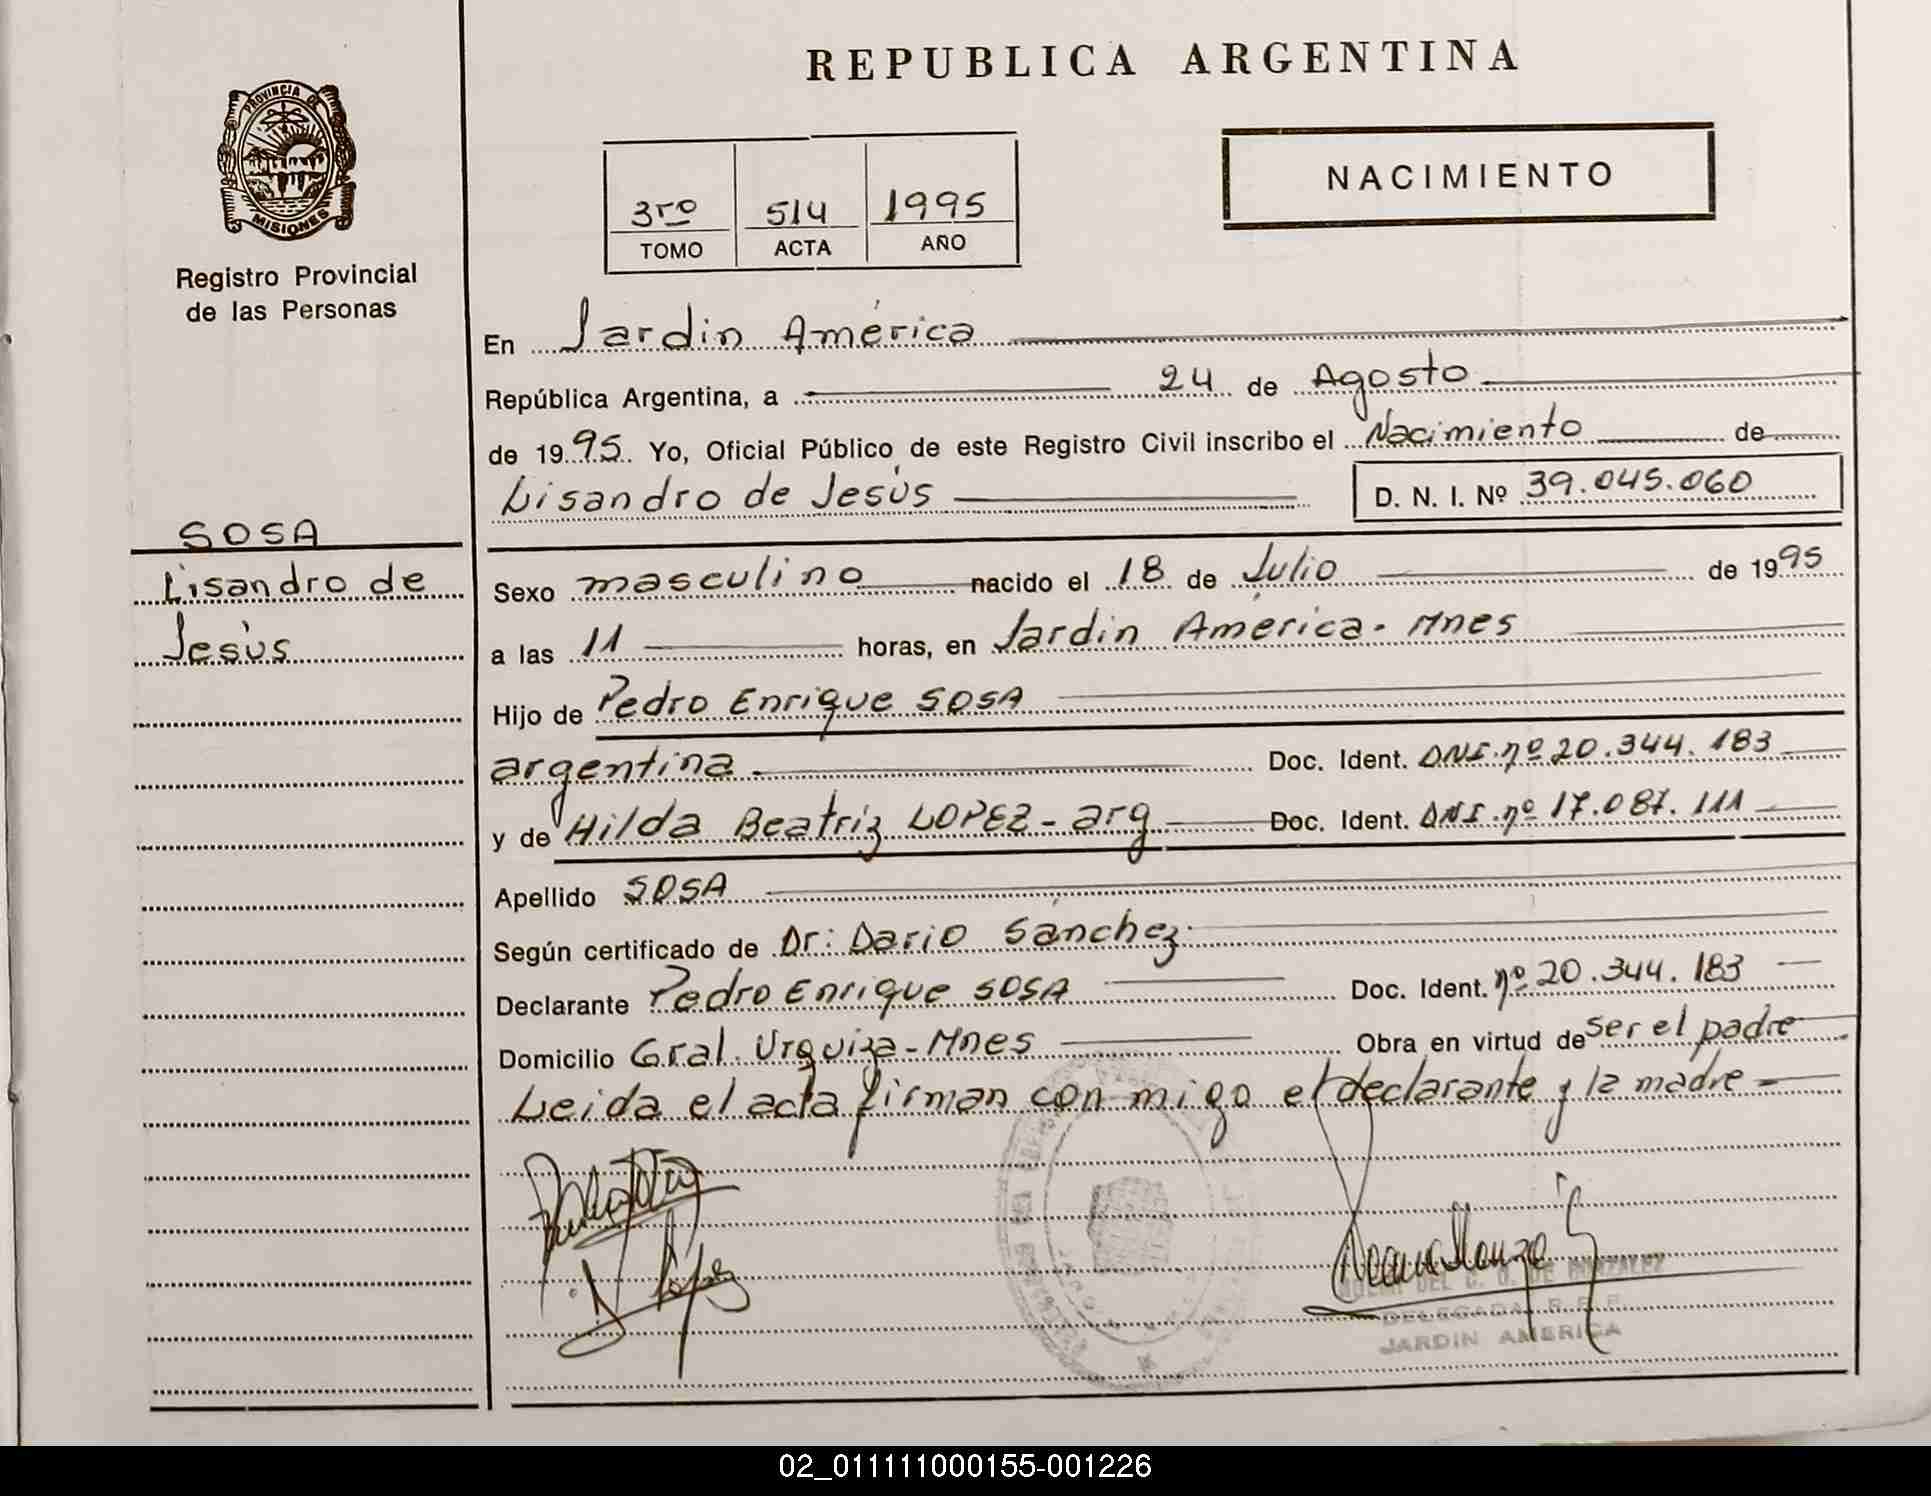 REPUBLICA ARGENTINA
PROVINCIA DE
MISIONES
Registro Provincial
de las Personas
3ro 514 1995
TOMO ACTA AÑO
NACIMIENTO
En Jardin América
República Argentina, a 24 de Agosto
de 1995. Yo, Oficial Público de este Registro Civil inscribo el Nacimiento de
Lisandro de Jesús D. N. I. Nº 39.045.060
SOSA
Lisandro de
Jesús
Sexo masculino nacido el 18 de Julio de 1995
a las 11 horas, en Jardin América - Mnes
Hijo de Pedro Enrique SOSA
argentina. Doc. Ident. DNI. nº 20.344.183
y de Hilda Beatriz LOPEZ - arg Doc. Ident. DNI. nº 17.087.111
Apellido SOSA
Según certificado de Dr: Dario Sánchez
Declarante Pedro Enrique SOSA Doc. Ident. nº 20.344.183
Domicilio Gral. Urquiza - Mnes Obra en virtud de ser el padre
Leida el acta firman con migo el declarante y la madre -
López
DEL C. O. DE GONZALEZ
DELEGADA R.P.P.
JARDIN AMERICA
02_011111000155-001226